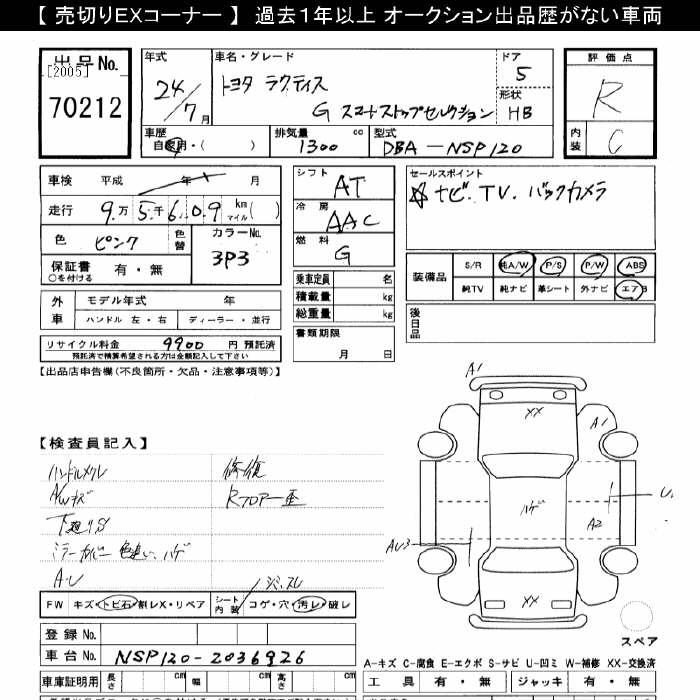 【 売切りEXコーナー 】 過去１年以上 オークション出品歴がない車両
出品No.
[2005]
70212
年式
24/7月
車名・グレード
トヨタ ラクティス
G スマートストップセレクション
ドア
5
形状
HB
評価点
R
内装
C
車歴
自家用・( )
排気量 cc
1300
型式
DBA-NSP120
車検 平成 年 月
走行 9万5千6.0.9 km マイル( )
色 ピンク 色替
カラーNo.
3P3
保証書 有・無
○を付ける
外車
モデル年式 年
ハンドル 左・右 ディーラー・並行
リサイクル料金 9900 円 預託済
預託済で精算希望される方は金額記入して下さい
シフト
AT
冷房
AAC
燃料
G
乗車定員 名
積載量 kg
総重量 kg
書類期限
月 日
セールスポイント
☆ナビ.TV.バックカメラ
装備品
S/R 純A/W P/S P/W ABS
純TV 純ナビ 革シート 外ナビ エアB
後日品
【出品店申告欄(不良箇所・欠品・注意事項等)】
【検査員記入】
ハンドルメクレ
A/Wキズ
下廻りS
ミラーカバー色違い、ハゲ
A・U
修復
Rフロアー歪
FW キズ・トビ石・割レX・リペア
シート内装 コゲ・穴・汚レ・破レ
登録No.
車台No. NSP120-2036926
車庫証明用 長さ 幅 高さ
A1
XX
A1
ハゲ
U1
A2
AU3
XX
スペア
A-キズ C-腐食 E-エクボ S-サビ U-凹ミ W-補修 XX-交換済
工具 有・無 ジャッキ 有・無